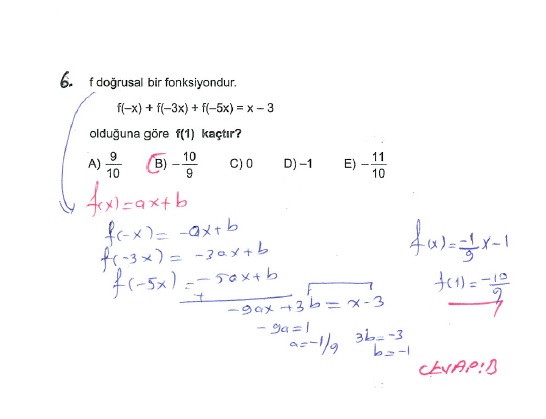 6. f doğrusal bir fonksiyondur.
f(–x) + f(–3x) + f(–5x) = x – 3
olduğuna göre f(1) kaçtır?
A) 9/10 B) – 10/9 C) 0 D) –1 E) – 11/10
f(x)=ax+b
f(-x) = -ax+b
f(-3x) = -3ax+b
f(-5x) = -5ax+b
+
-9ax+3b = x-3
-9a=1
a=-1/9
3b=-3
b=-1
f(x)=-1/9x-1
f(1)=-10/9
CEVAP:B